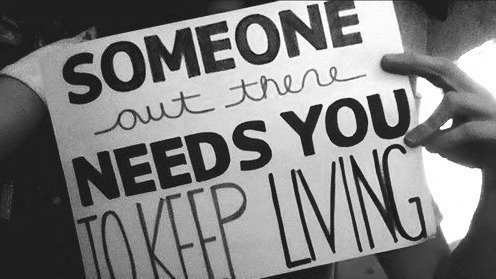 SOMEONE
out there
NEEDS YOU
TO KEEP LIVING